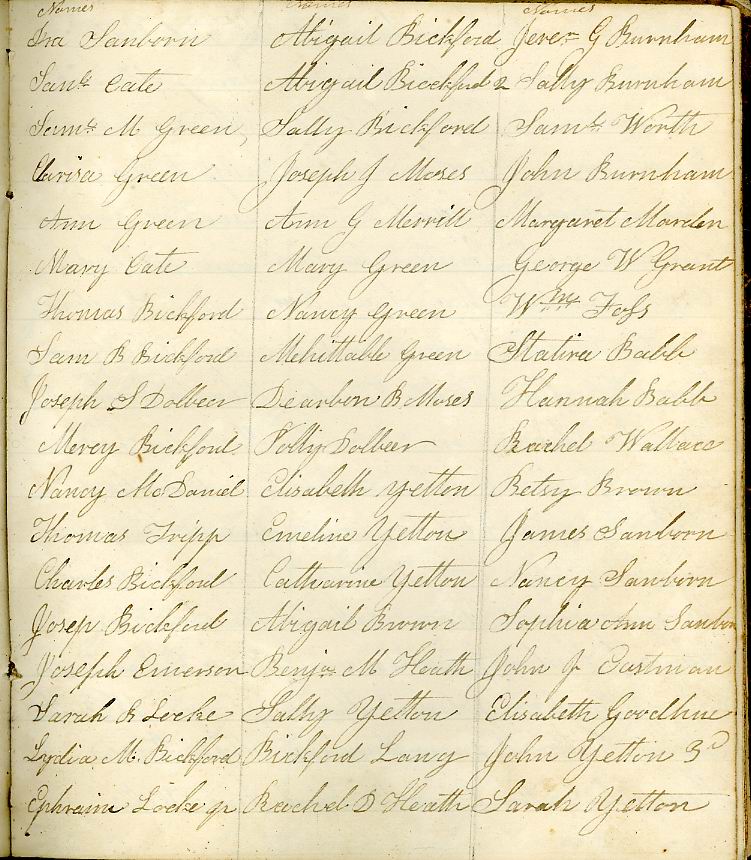 Names Names Names
Ira Sanborn Abigail Bickford Jerem G Burnham
Saml Cate Abigail Bickford 2 Sally Burnham
Saml M Green, Sally Bickford Saml Worth
Clarisa Green Joseph J Moses John Burnham
Ann Green Ann G Merrill Margaret Marden
Mary Cate Mary Green George W Grant
Thomas Bickford Nancy Green Wm Foss
Sam B Bickford Mehittable Green Statira Babb
Joseph S Dolbeer Dearbon B Moses Hannah Babb
Mercy Bickford Polly Dolbeer Rachel Wallace
Nancy McDaniel Elisabeth Yetton Betsy Brown
Thomas Tripp Emeline Yetton James Sanborn
Charles Bickford Catharine Yetton Nancy Sanborn
Josep Bickford Abigail Brown Sophia Ann Sanborn
Joseph Emerson Benja M Heath John J Eastman
Sarah B Locke Sally Yetton Elisabeth Goodhue
Lydia M. Bickford Bickford Lang John Yetton 3d
Ephraim Locke jr Rachel D Heath Sarah Yetton